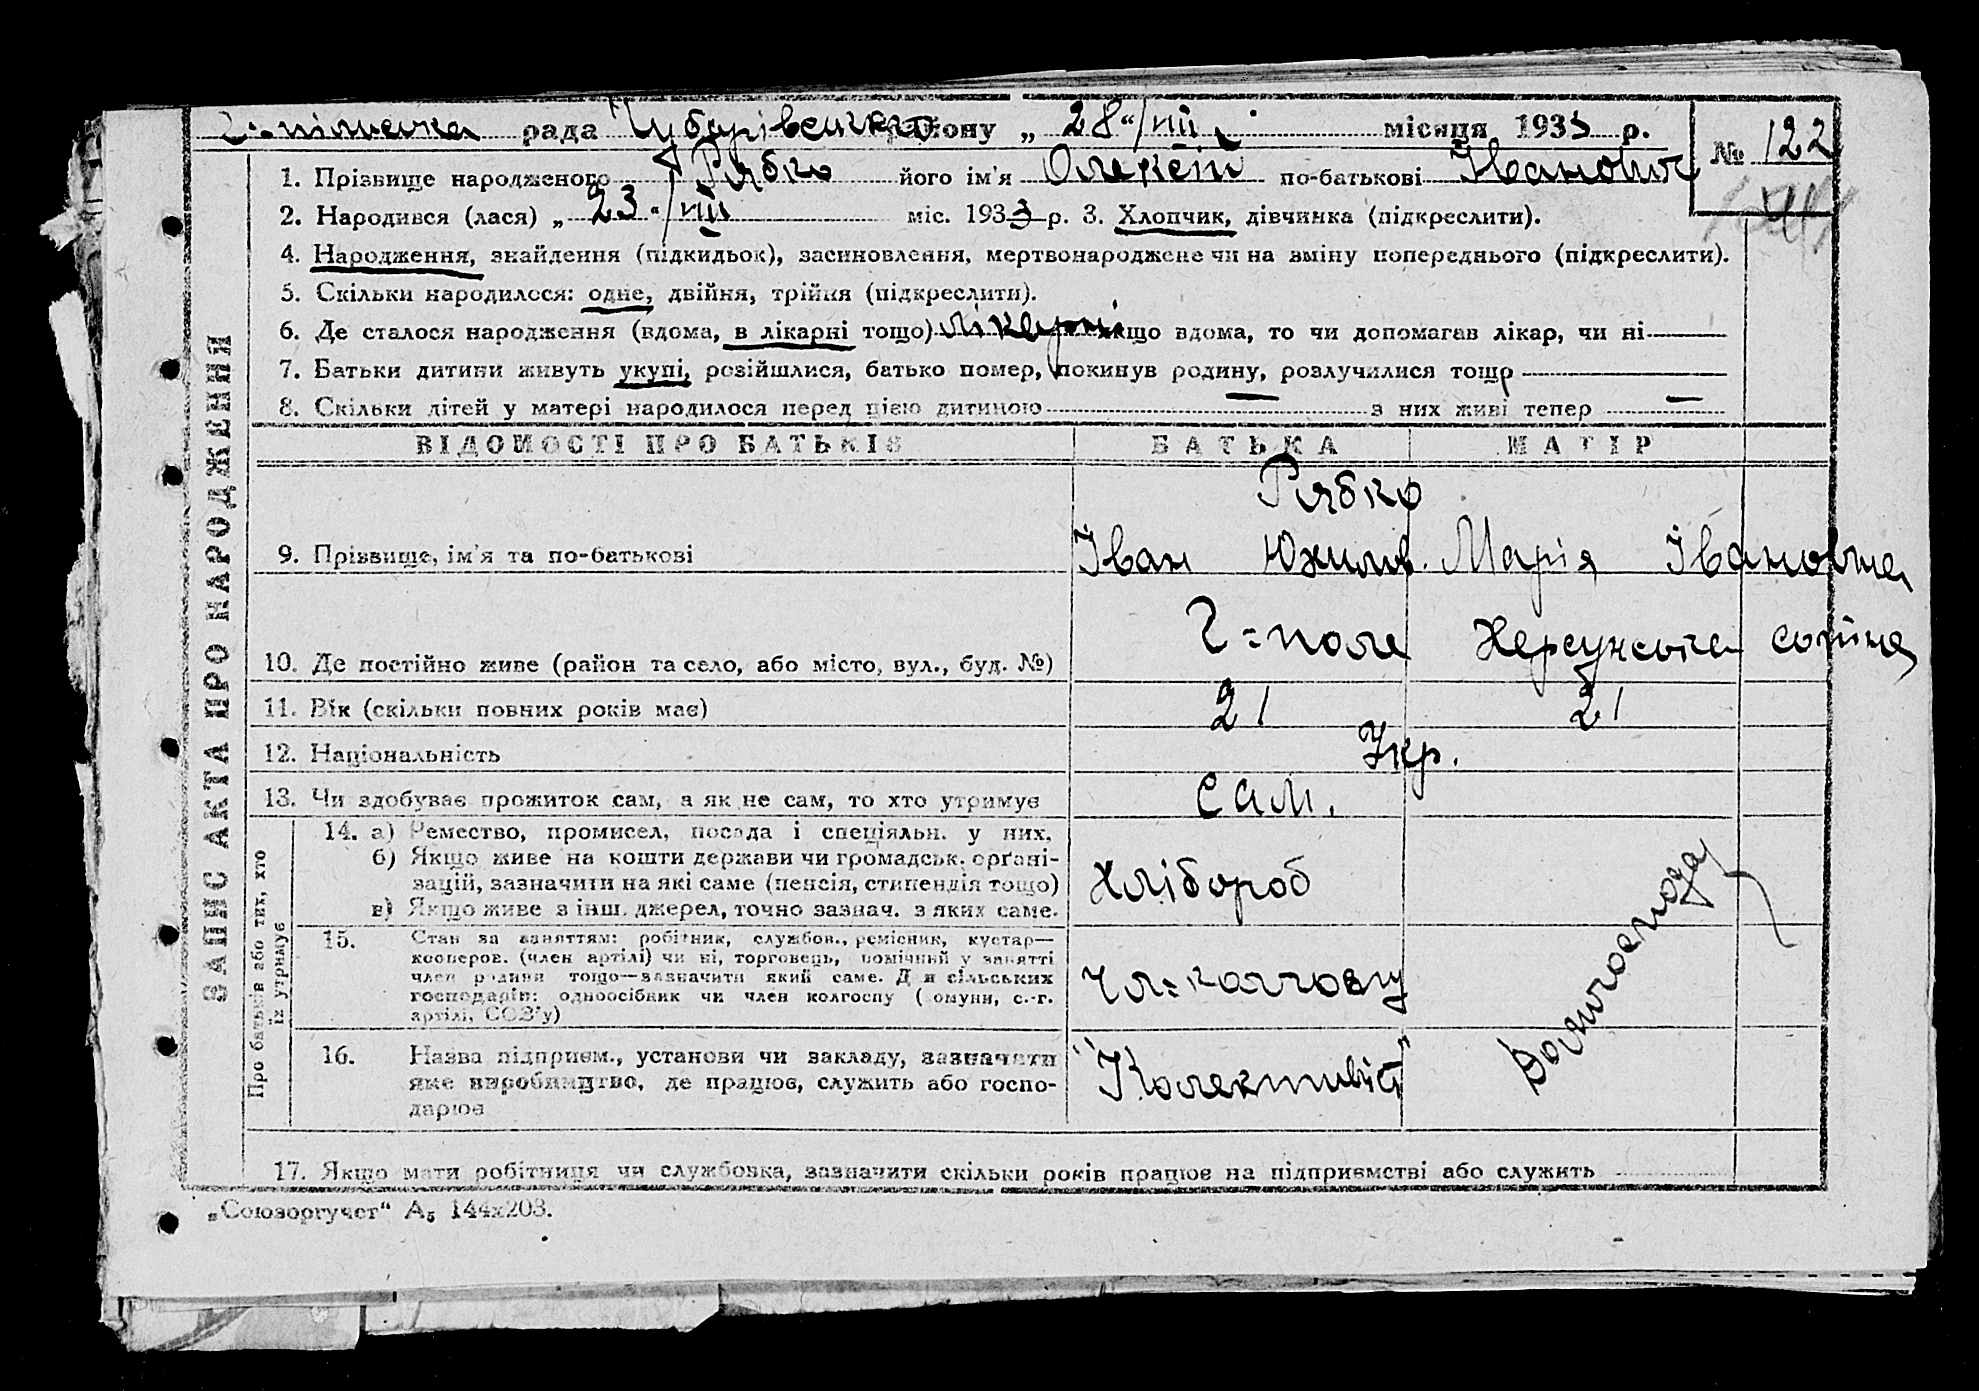 Г=пільська рада Чубарівського району „ 28 “ / VIII місяця 1933 р.
№ 122
1. Прізвище народженого Рябко його ім'я Олексій по-батькові Іванович
2. Народився (лася) „ 23 “ / VIII міс. 1933 р. 3. Хлопчик, дівчинка (підкреслити).
4. Народження, знайдення (підкидьок), засиновлення, мертвонароджене чи на зміну попереднього (підкреслити).
5. Скільки народилося: одне, двійня, трійня (підкреслити).
6. Де сталося народження (вдома, в лікарні тощо) лікарні якщо вдома, то чи допомагав лікар, чи ні
7. Батьки дитини живуть укупі, розійшлися, батько помер, покинув родину, розлучилися тощо
8. Скільки дітей у матері народилося перед цією дитиною — з них живі тепер —
ЗАПИС АКТА ПРО НАРОДЖЕННЯ
ВІДОМОСТІ ПРО БАТЬКІВ БАТЬКА МАТІР
Рябко
9. Прізвище, ім'я та по-батькові Іван Юхимов. Марія Івановна
10. Де постійно живе (район та село, або місто, вул., буд. №) Г=поле Херсунська сотня
11. Вік (скільки повних років має) 21 21
12. Національність Укр.
13. Чи здобуває прожиток сам, а як не сам, то хто утримує сам.
Про батьків або тих, хто
їх утримує
14. а) Ремество, промисел, посада і спеціяльн. у них.
б) Якщо живе на кошти держави чи громадськ. орґані-
зацій, зазначити на які саме (пенсія, стипендія тощо) Хлібороб
в) Якщо живе з інш. джерел, точно зазнач. з яких саме.
15. Стан за заняттям: робітник, службов., ремісник, кустар—
кооперов. (член артілі) чи ні, торговець, помічний у занятті
член родини тощо—зазначити який саме. Для сільських
господарів: одноосібник чи член колгоспу (комуни, с.-г.
артілі, СОЗ'у) Чл=колгоспу
16. Назва підприєм., установи чи закладу, зазначити
яке виробництво, де працює, служить або госпо-
дарює "Колективіст"
Домогосподар
17. Якщо мати робітниця чи службовка, зазначити скільки років працює на підприємстві або служить
„Союзоргучет“ А₅ 144х203.